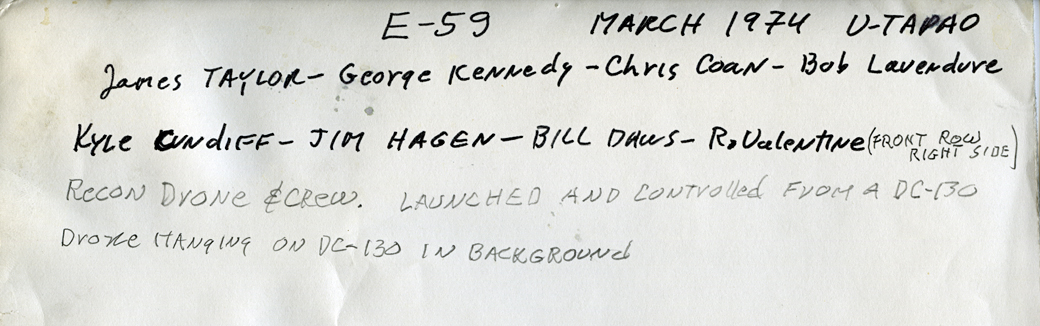 E-59 MARCH 1974 U-TAPAO
James TAYLOR - George Kennedy - Chris Coan - Bob Lavendure
Kyle Cundiff - JIM HAGEN - BILL DAWS - R. Valentine (FRONT ROW
RIGHT SIDE)
Recon Drone & CREW. LAUNCHED AND Controlled From A DC-130
Drone HANgINg ON DC-130 IN BACKGROUNd